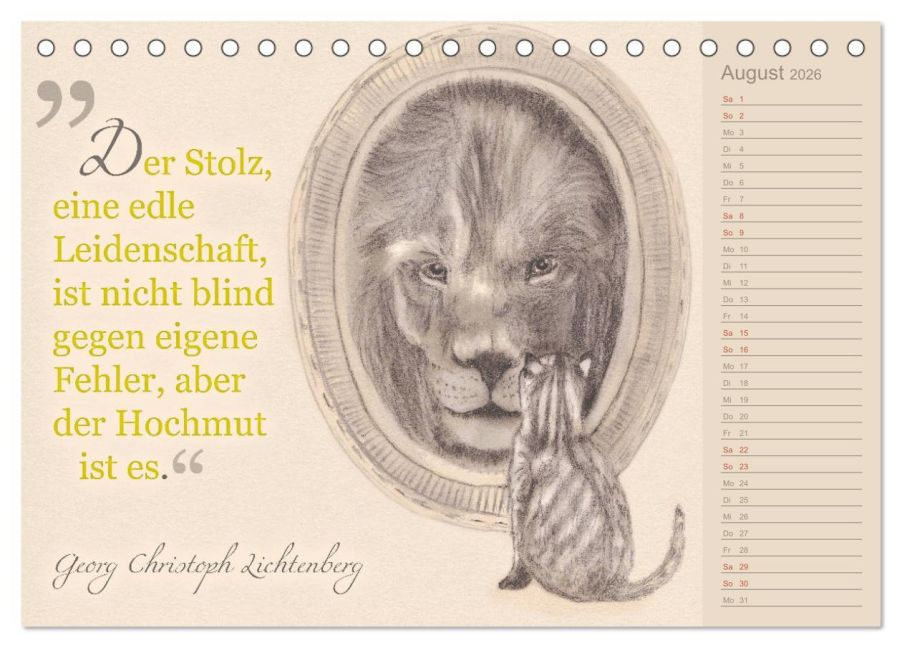 ”
Der Stolz,
eine edle
Leidenschaft,
ist nicht blind
gegen eigene
Fehler, aber
der Hochmut
ist es.“
Georg Christoph Lichtenberg
August 2026
Sa 1
So 2
Mo 3
Di 4
Mi 5
Do 6
Fr 7
Sa 8
So 9
Mo 10
Di 11
Mi 12
Do 13
Fr 14
Sa 15
So 16
Mo 17
Di 18
Mi 19
Do 20
Fr 21
Sa 22
So 23
Mo 24
Di 25
Mi 26
Do 27
Fr 28
Sa 29
So 30
Mo 31